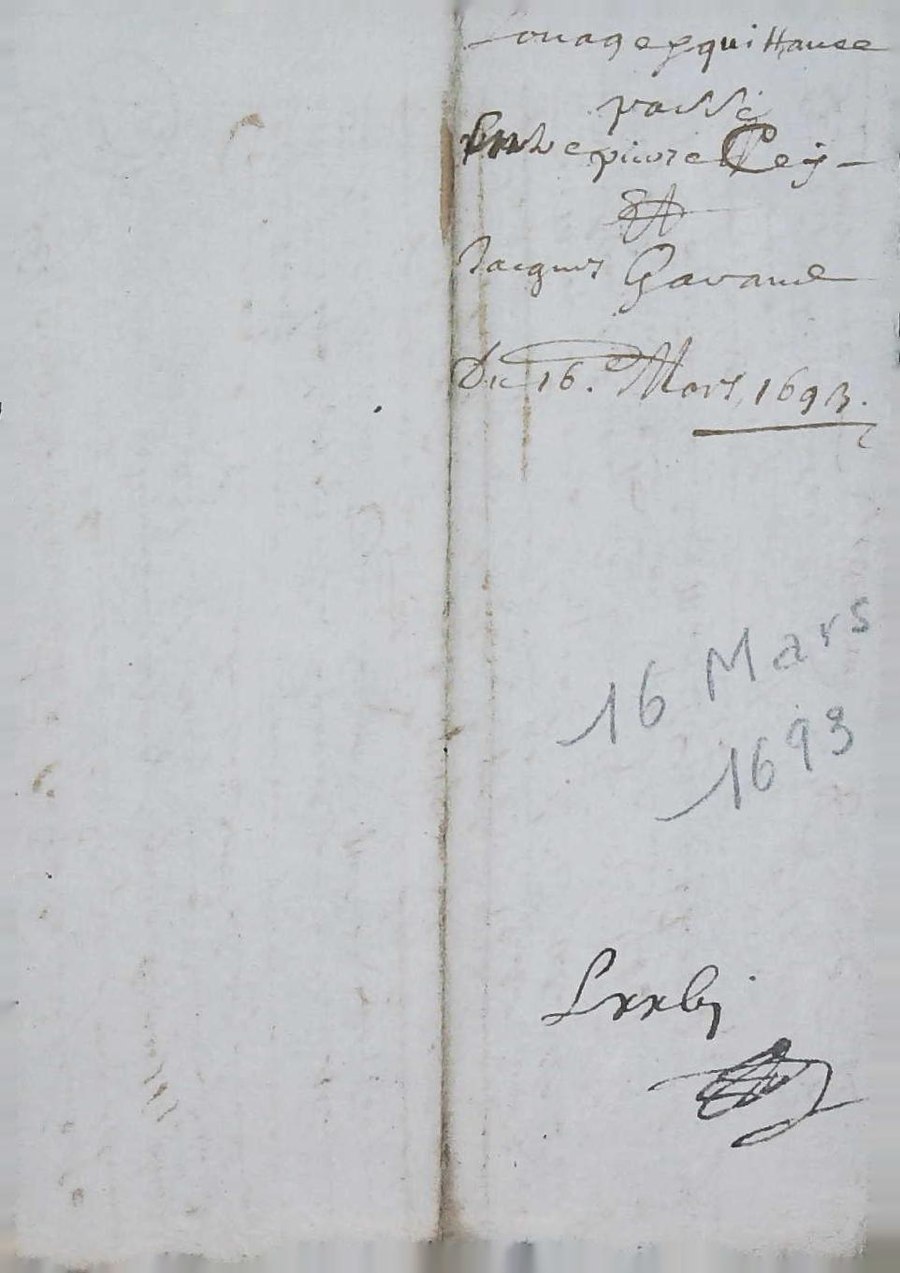 quittance
passé
Entre pierre Rey
Et
Jacques Gavaud
Du 16. Mars 1693.
16 Mars
1693
Lxxbj